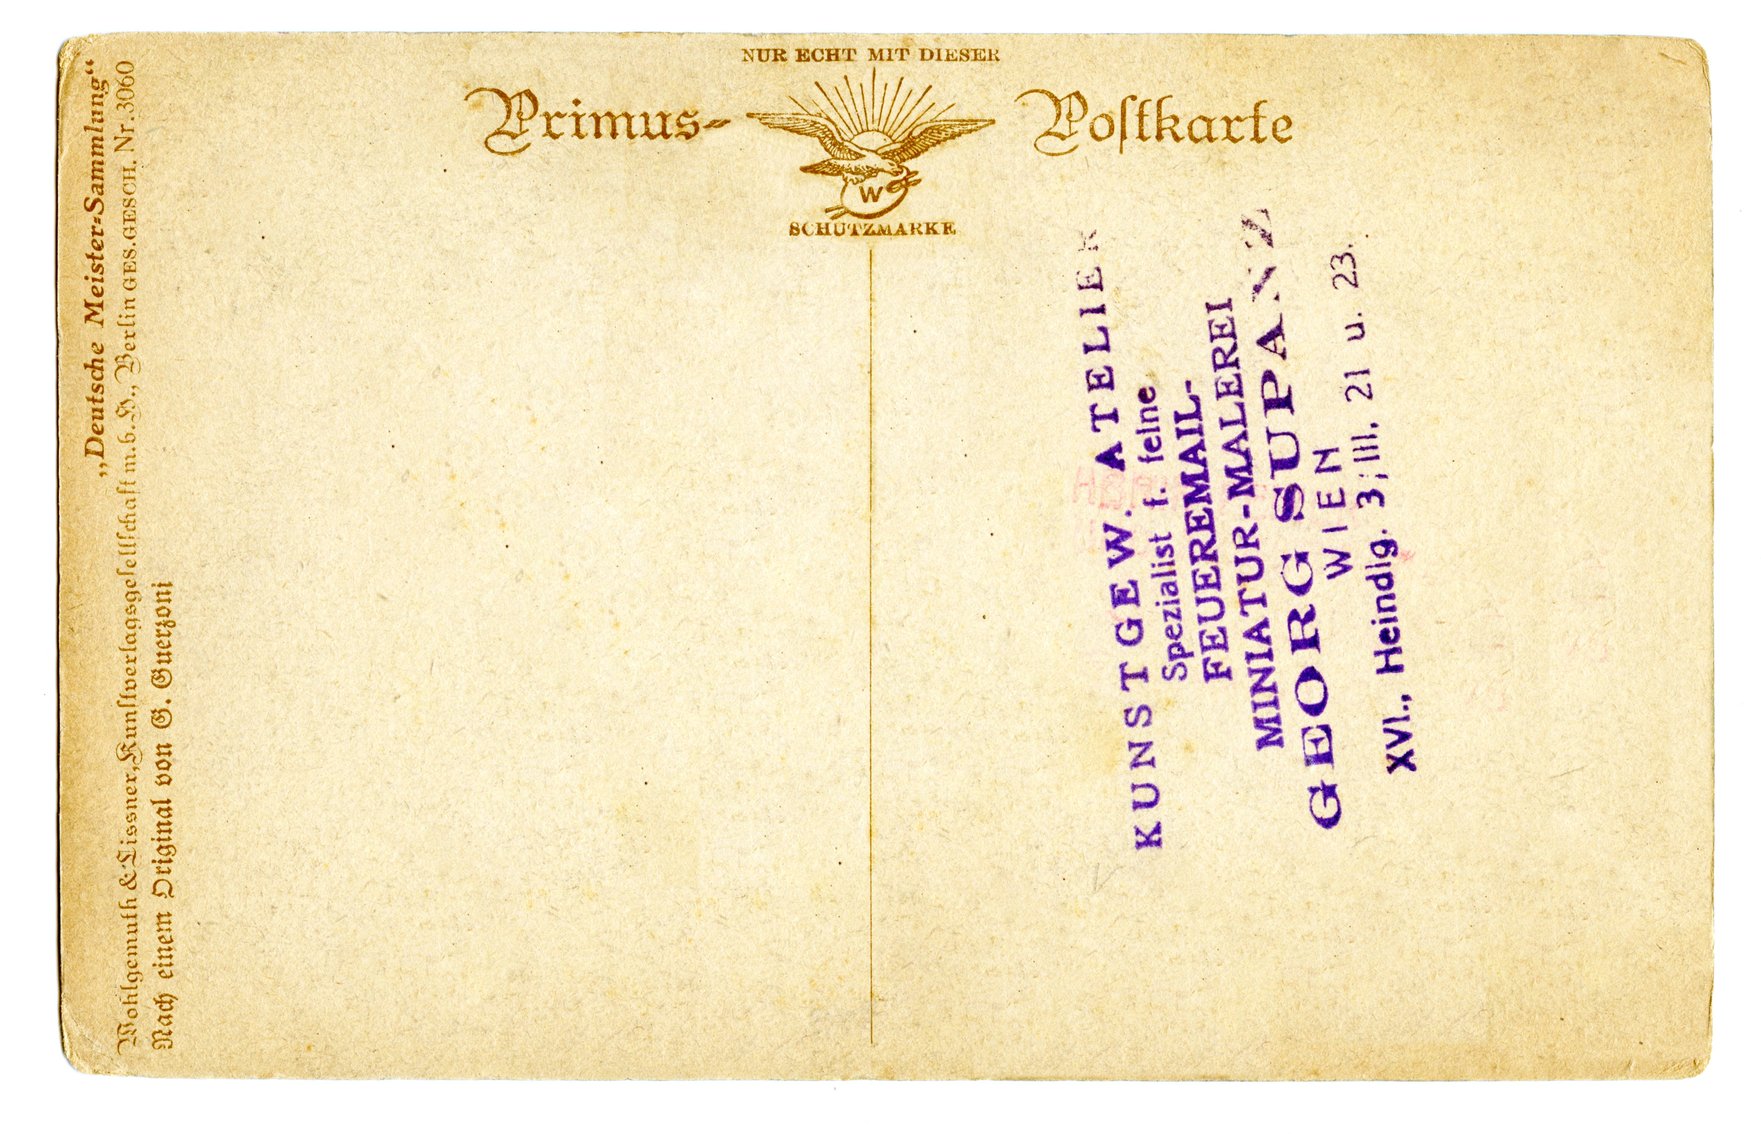 NUR ECHT MIT DIESER
Primus-
Poſtkarte
W
SCHUTZMARKE
„Deutsche Meister-Sammlung“
Wohlgemuth & Lissner, Kunſtverlagsgeſellſchaft m. b. H., Berlin GES. GESCH. Nr. 3060
Nach einem Original von G. Guerzoni
KUNSTGEW. ATELIER
Spezialist f. feine
FEUEREMAIL-
MINIATUR-MALEREI
GEORG SUPANZ
WIEN
XVI., Heindlg. 3, III. 21 u. 23.